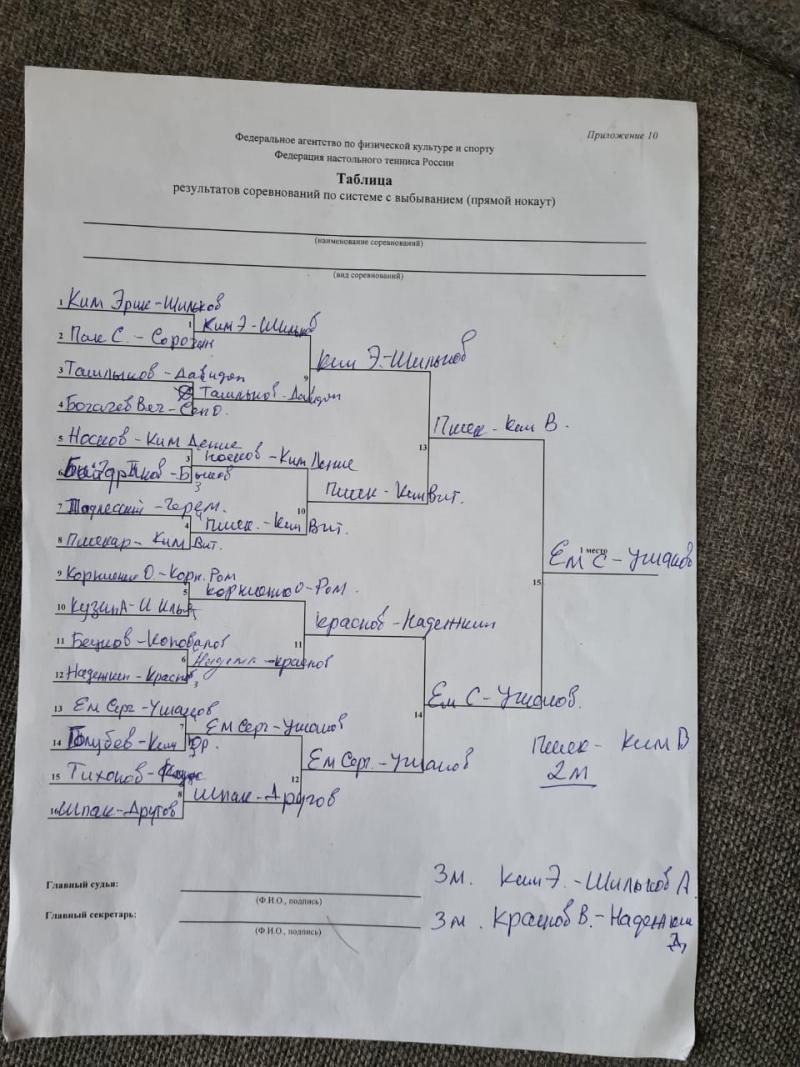 Приложение 10
Федеральное агентство по физической культуре и спорту
Федерация настольного тенниса России
Таблица
результатов соревнований по системе с выбыванием (прямой нокаут)
(наименование соревнований)
(вид соревнований)
1 Ким Эрик - Шильков
1 Ким Э - Шильков
2 Пак С. - Сорокин
9 Ким Э. - Шильков
3 Ташлыков - Давидян
Ташлыков - Давидян
4 Богачев Веч - Сен О.
13 Пшек - Ким В.
5 Носков - Ким Дение
3 Носков - Ким Дение
6 - Быков
10 Пшек - Ким Вит.
7 Подлесский - Черем.
4 Пшек. - Ким Вит.
8 Пшекар - Ким Вит.
1 место
15 Ем С - Ушаков
9 Корниенко О - Корн. Ром
5 Корниенко О - Ром.
10 Кузин А - И Илья
11 Краснов - Надежкин
11 Бецков - Коновалов
6 - Краснов
12 Надежкин - Краснов
14 Ем С - Ушаков.
13 Ем Серг - Ушаков
7 Ем Серг - Ушаков
14 Голубев - Ким Юр.
12 Ем Серг. - Ушаков
15 Тихонов -
8 Шпак - Другов
16 Шпак - Другов
Пшек - Ким В
2 м
Главный судья:
(Ф.И.О., подпись)
3 м. Ким Э. - Шильков А.
Главный секретарь:
(Ф.И.О., подпись)
3 м. Краснов В. - Надежкин
Д,